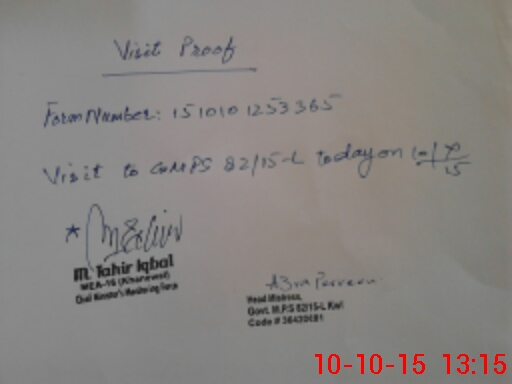 Visit Proof
Form Number: 151010 1253365
Visit to GMPS 82/15-L today on 10/
15
M. Tahir Iqbal
MEA-16 (Khanewal)
Chief Minister's Monitoring Force
Azra Parveen
Head Mistress,
Govt. M.P.S 82/15-L Kwl
Code # 36420081
10-10-15 13:15